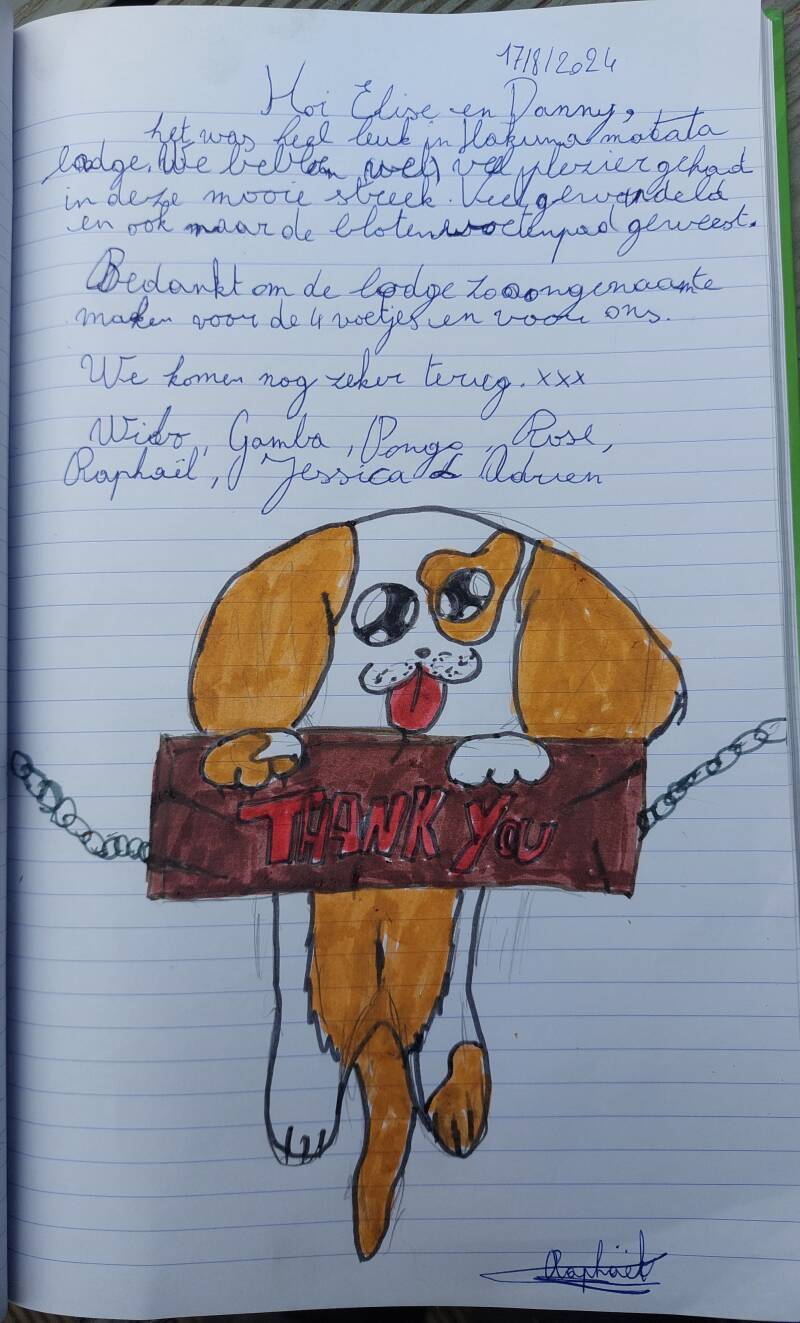 17/8/2024
Hoi Elise en Danny,
het was heel leuk in Hakuma matata
lodge. We hebben veel plezier gehad
in deze mooie streek. Veel gewandeld
en ook naar de blotenvoetenpad geweest.
Bedankt om de lodge zo aangenaam te
maken voor de 4 voetjes en voor ons.
We komen nog zeker terug. xxx
Wido, Gamba, Pongo, Rose,
Raphaël, Jessica & Adrien
THANK YOU
Raphaël